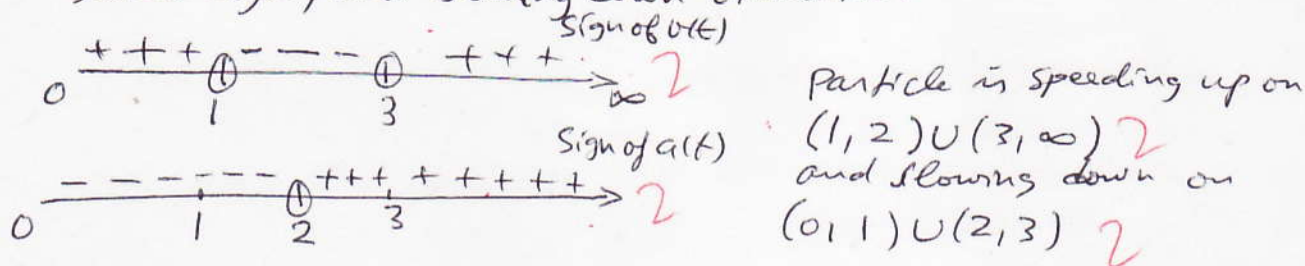 Sign of v(t)
+ + + - - - + + +
0 1 3 ∞ 2
Sign of a(t)
- - - - - - + + + + + + + +
0 1 2 3 2
Particle is speeding up on
(1, 2) ∪ (3, ∞) 2
and slowing down on
(0, 1) ∪ (2, 3) 2